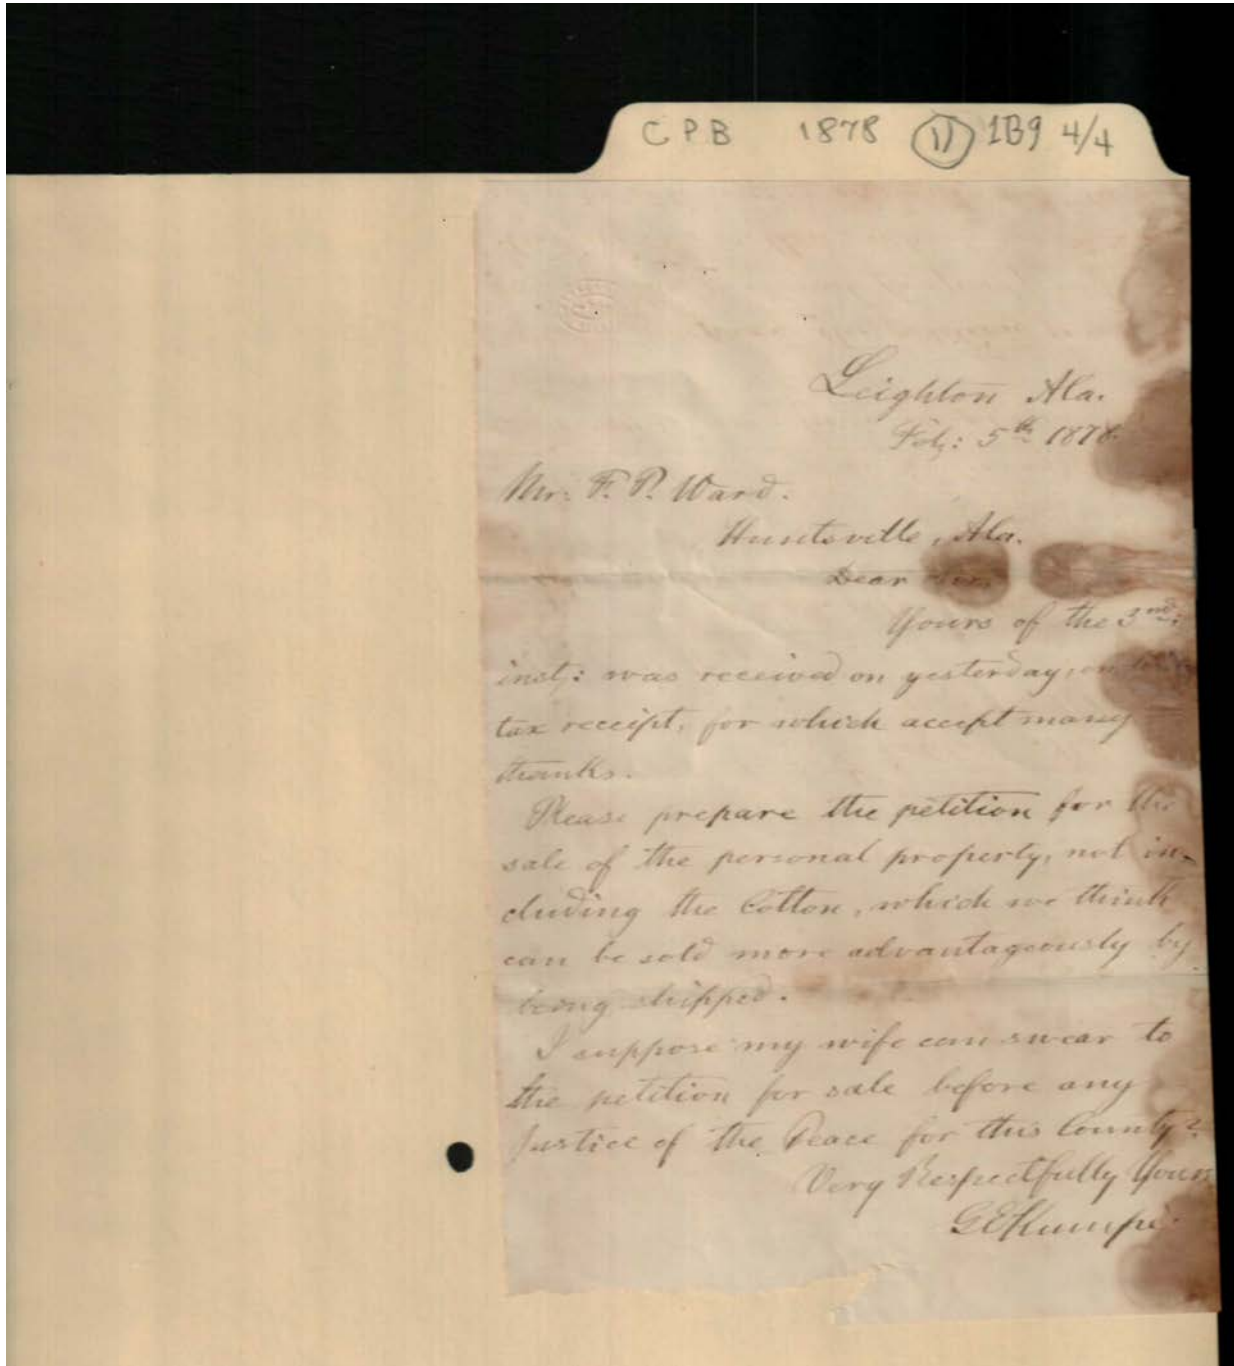 CPB 1878 11 1B9 4/4
Leighton Ala.
Feb: 5th 1878
Mr. F. P. Ward.
Huntsville, Ala.
Dear Sir
Yours of the 3rd:
inst: was received on yesterday,
tax receipt, for which accept many
thanks.
Please prepare the petition for the
sale of the personal property, not in-
cluding the Cotton, which we think
can be sold more advantageously by
being shipped.
I suppose my wife can swear to
the petition for sale before any
Justice of the Peace for this County?
Very Respectfully Yours
G E Kumpe